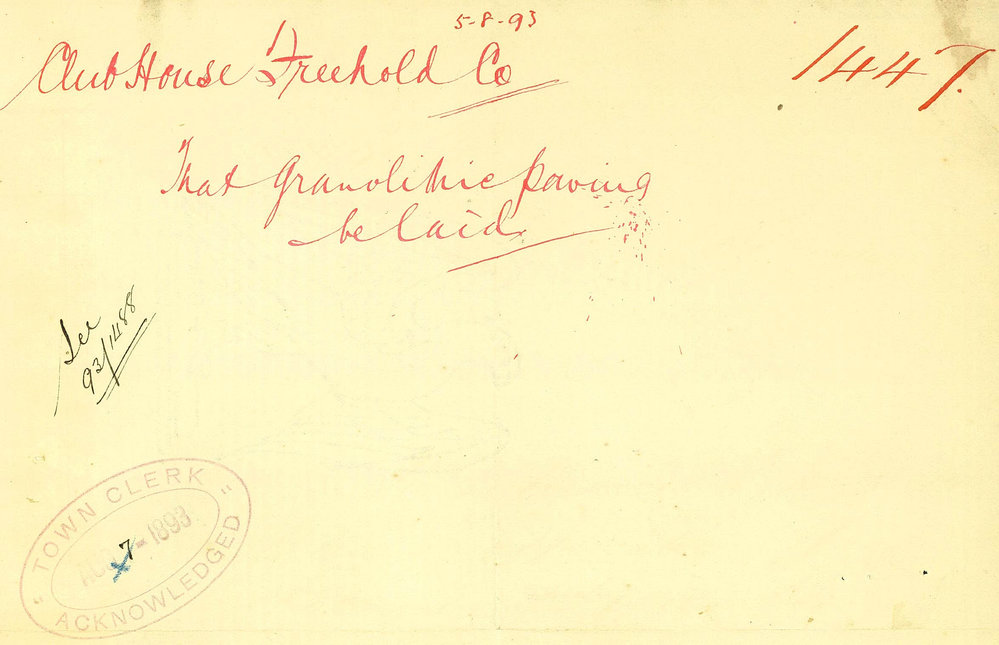 5-8-93
Club House Freehold Co
1447.
That Granolithic paving
be laid
See
93/1488
"TOWN CLERK"
AUG 7-1893
ACKNOWLEDGED